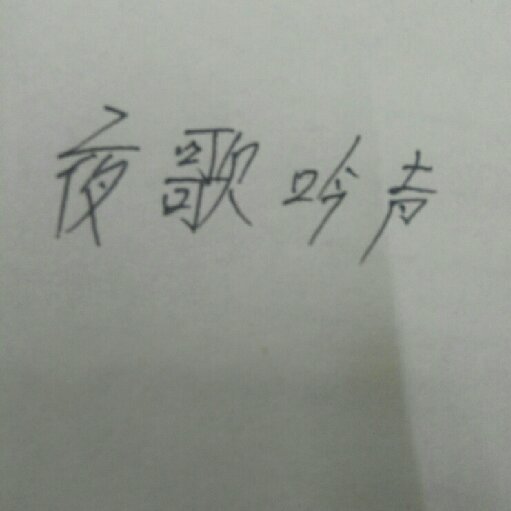 夜歌吟声